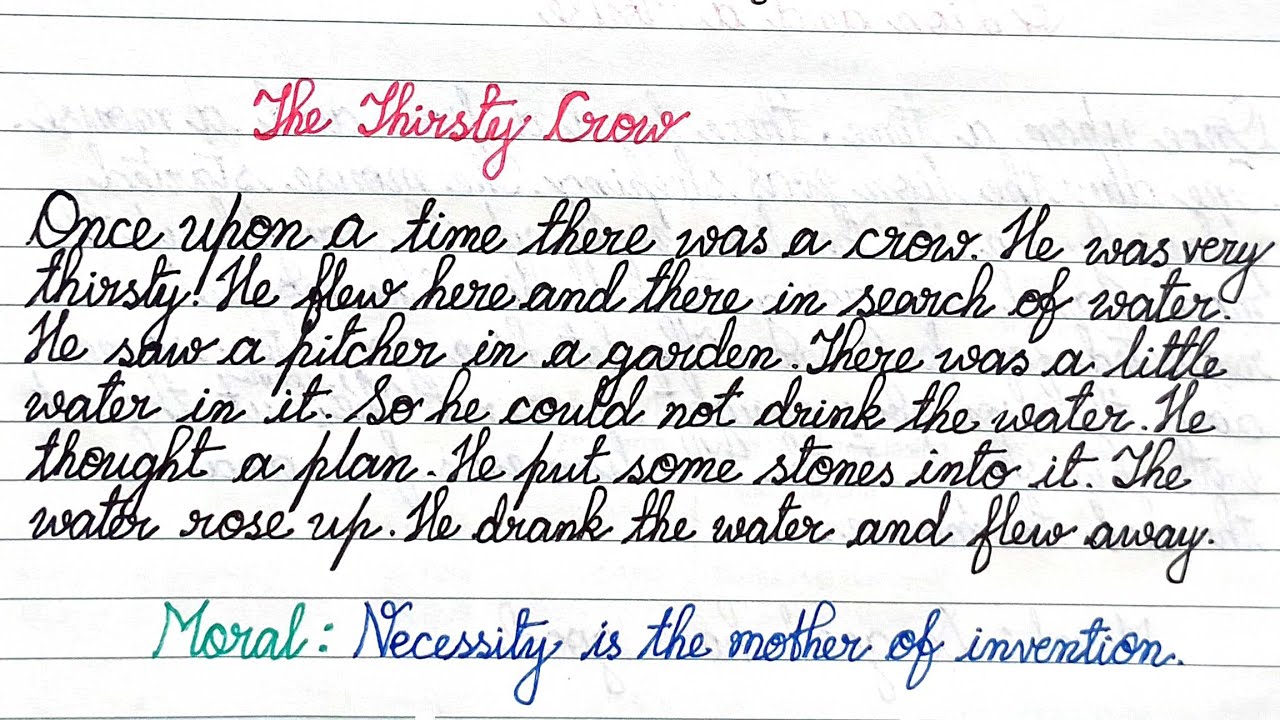 The Thirsty Crow
Once upon a time there was a crow. He was very
thirsty! He flew here and there in search of water.
He saw a pitcher in a garden. There was a little
water in it. So he could not drink the water. He
thought a plan. He put some stones into it. The
water rose up. He drank the water and flew away.
Moral: Necessity is the mother of invention.